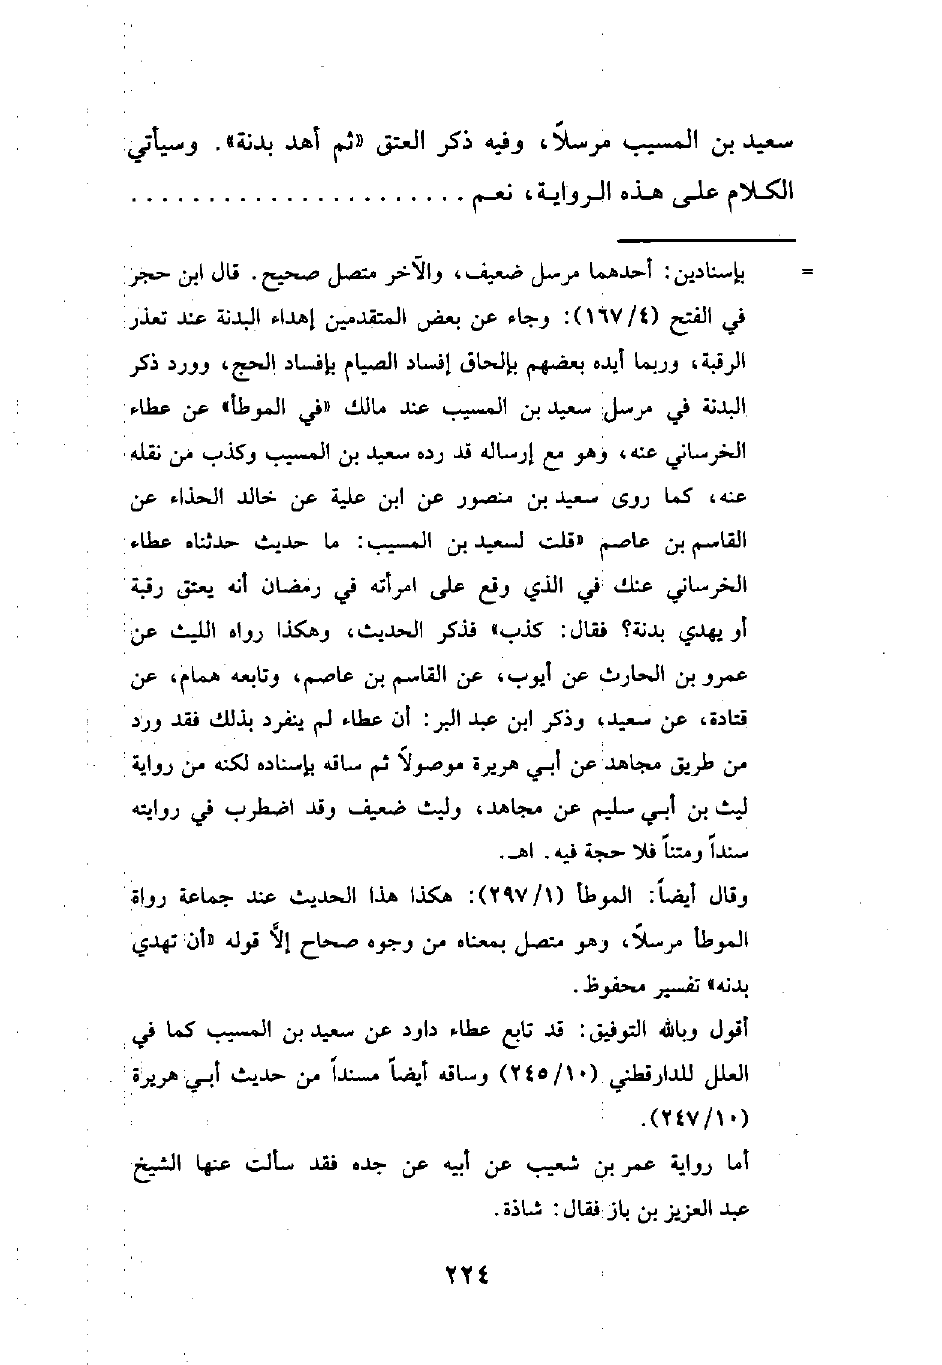 سعيد بن المسيب مرسلاً، وفيه ذكر العتق «ثم أهد بدنة». وسيأتي
الكلام على هذه الرواية، نعم . . . . . . . . . . . . . . . . . . . . . .
= بإسنادين: أحدهما مرسل ضعيف، والآخر متصل صحيح. قال ابن حجر
في الفتح (١٦٧/٤): وجاء عن بعض المتقدمين إهداء البدنة عند تعذر
الرقبة، وربما أيده بعضهم بإلحاق إفساد الصيام بإفساد الحج، وورد ذكر
البدنة في مرسل سعيد بن المسيب عند مالك «في الموطأ» عن عطاء
الخرساني عنه، وهو مع إرساله قد رده سعيد بن المسيب وكذب من نقله
عنه، كما روى سعيد بن منصور عن ابن علية عن خالد الحذاء عن
القاسم بن عاصم «قلت لسعيد بن المسيب: ما حديث حدثناه عطاء
الخرساني عنك في الذي وقع على امرأته في رمضان أنه يعتق رقبة
أو يهدي بدنة؟ فقال: كذب» فذكر الحديث، وهكذا رواه الليث عن
عمرو بن الحارث عن أيوب، عن القاسم بن عاصم، وتابعه همام، عن
قتادة، عن سعيد، وذكر ابن عبد البر: أن عطاء لم ينفرد بذلك فقد ورد
من طريق مجاهد عن أبي هريرة موصولاً ثم ساقه بإسناده لكنه من رواية
ليث بن أبي سليم عن مجاهد، وليث ضعيف وقد اضطرب في روايته
سنداً ومتناً فلا حجة فيه. اهـ.
وقال أيضاً: الموطأ (٢٩٧/١): هكذا هذا الحديث عند جماعة رواة
الموطأ مرسلاً، وهو متصل بمعناه من وجوه صحاح إلَّا قوله «أن تهدي
بدنه» تفسير محفوظ.
أقول وبالله التوفيق: قد تابع عطاء داود عن سعيد بن المسيب كما في
العلل للدارقطني (٢٤٥/١٠) وساقه أيضاً مسنداً من حديث أبي هريرة
(٢٤٧/١٠).
أما رواية عمر بن شعيب عن أبيه عن جده فقد سألت عنها الشيخ
عبد العزيز بن باز فقال: شاذة.
٢٢٤